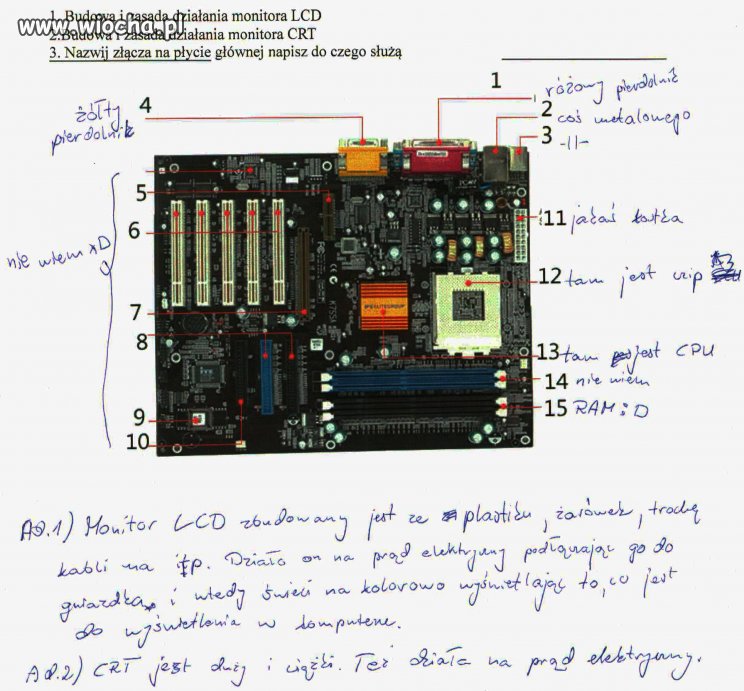 1. Budowa i zasada działania monitora LCD
www.wiocha.pl
2.Budowa i zasada działania monitora CRT
3. Nazwij złącza na płycie głównej napisz do czego służą
1 różowy pierdolnik
4 żółty pierdolnik
2 coś metalowego
3 -||-
5
6
nie wiem xD
11 jakaś kostka
12 tam jest czip
7
8
13 tam jest CPU
14 nie wiem
15 RAM :D
9
10
Ad.1) Monitor LCD zbudowany jest ze plastiku, żarówek, trochę
kabli ma itp. Działa on na prąd elektryczny podłączając go do
gniazdka i wtedy świeci na kolorowo wyświetlając to, co jest
do wyświetlenia w komputerze.
Ad.2) CRT jest duży i ciężki. Też działa na prąd elektryczny.